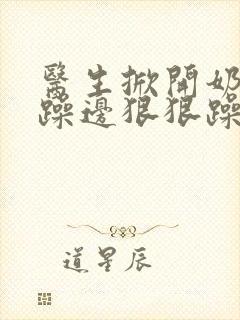 醫生掀開奶
躁邊狠狠躁
道星辰